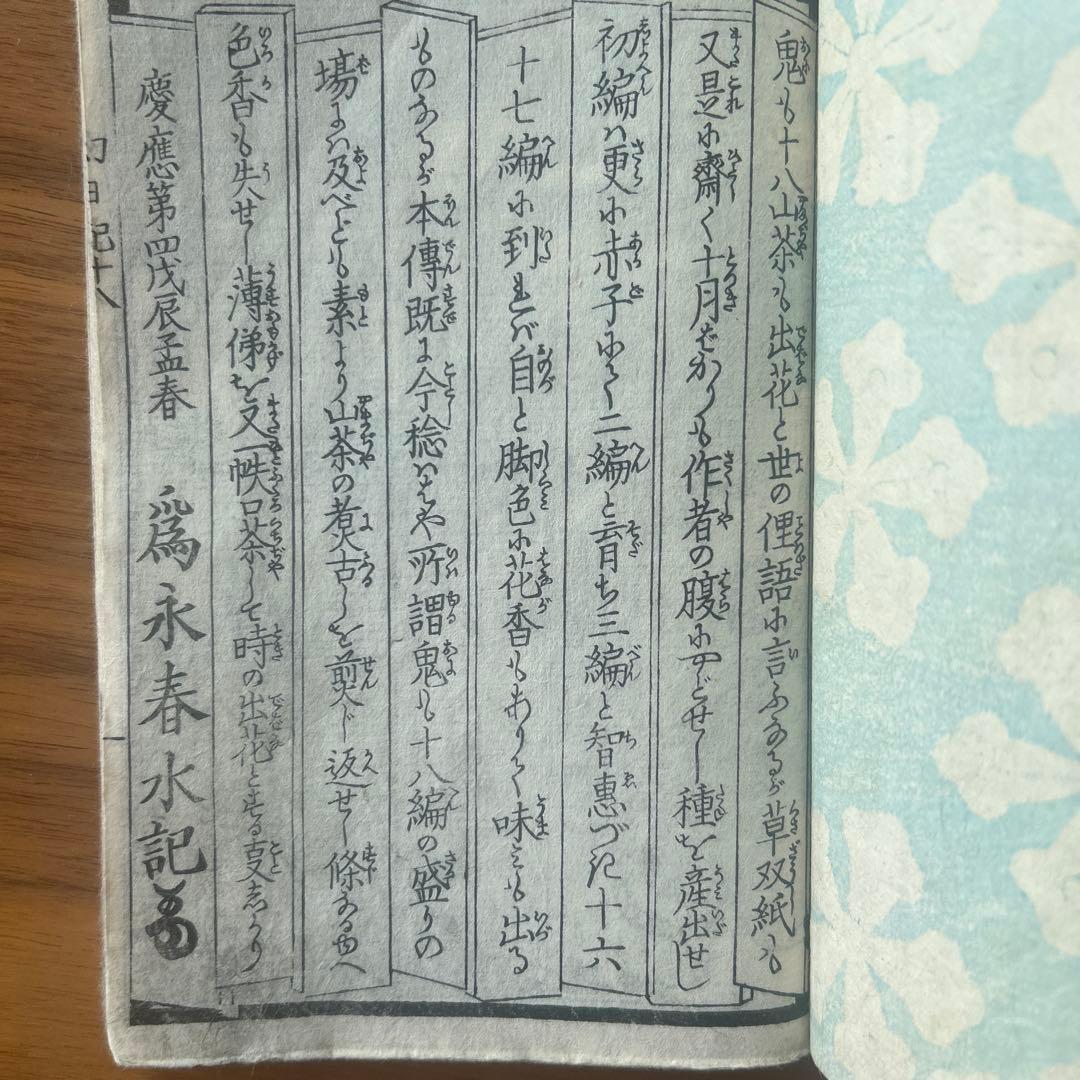 鬼も十八山茶も出花と世の俚語に言ふなるが草双紙も
又是に齋く十月ばかりも作者の腹にやどせし種を産出せし
初編は更に赤子にて二編と育ち三編と智惠づき十六
十七編に到れば自と脚色に花香もありて味みも出る
ものなるが本傳既に今稔はゝや所謂鬼も十八編の盛りの
場には及べども素より山茶の煮古しを煎じ返せし條なるゆへ
色香も失せし薄俤を又一帙口茶して時の出花とする事しかり
慶應第四戊辰孟春 爲永春水記